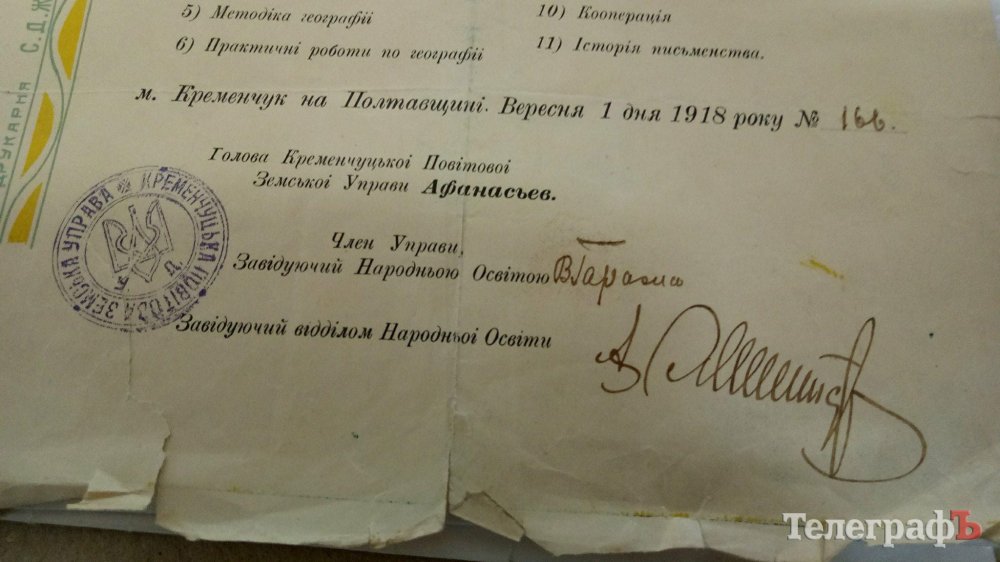 5) Методіка географії
6) Практичні роботи по географії
10) Кооперація
11) Історія письменства.
м. Кременчук на Полтавщині. Вересня 1 дня 1918 року № 166.
Голова Кременчуцької Повітової
Земської Управи Афанасьев.
Член Управи,
Завідуючий Народньою Освітою
Завідуючий відділом Народньої Освіти
КРЕМЕНЧУЦЬКА ПОВІТОВА ЗЕМСЬКА УПРАВА
ДРУКАРНЯ С.Д.Ж
ТелеграфЪ